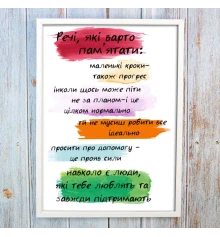 Речі, які варто
пам'ятати:
маленькі кроки-
також прогрес
інколи щось може піти
не за планом-і це
цілком нормально
ти не мусиш робити все
ідеально
просити про допомогу -
це прояв сили
навколо є люди,
які тебе люблять та
завжди підтримають